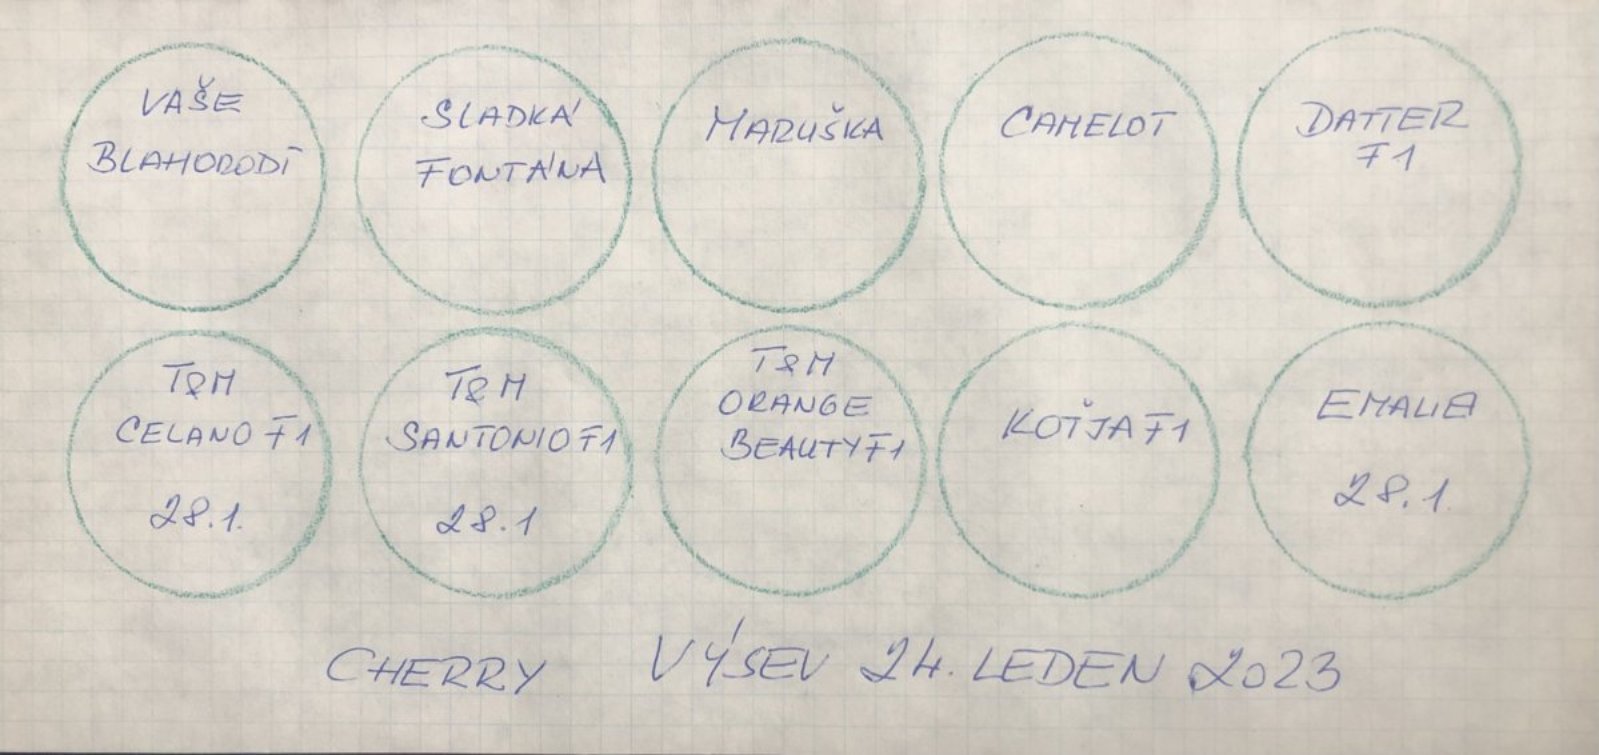 VAŠE
BLAHORODÍ
SLADKÁ
FONTÁNA
MARUŠKA
CAMELOT
DATTER
F1
T&M
CELANO F1
28.1.
T&M
SANTONIO F1
28.1
T&M
ORANGE
BEAUTY F1
KOŤJA F1
EMALIA
28.1
CHERRY VÝSEV 24. LEDEN 2023